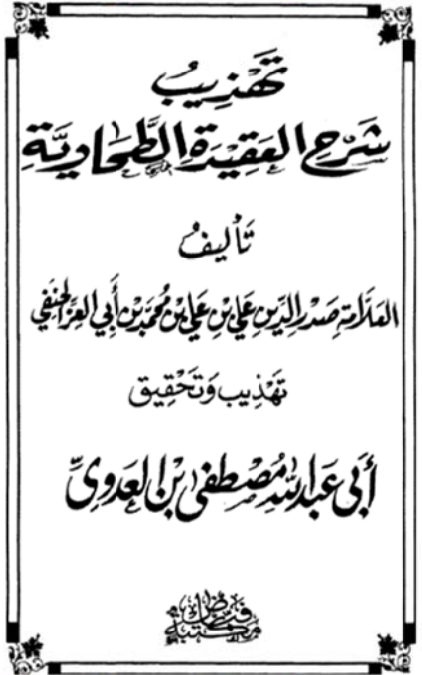 تَهْذِيبُ
شَرْحِ العَقِيدَةِ الطَّحَاوِيَّةِ
تَأليفُ
العَلَّامَةِ صَدْرِ الدِّينِ عَلِي بْنِ عَلِي بْنِ مُحَمَّدِ بْنِ أَبِي العِزِّ الحَنَفِي
تَهْذِيب وَتَحْقِيق
أَبِي عَبْدِ اللهِ مُصْطَفَى بْنِ العَدَوِيِّ
مكتبة فياض